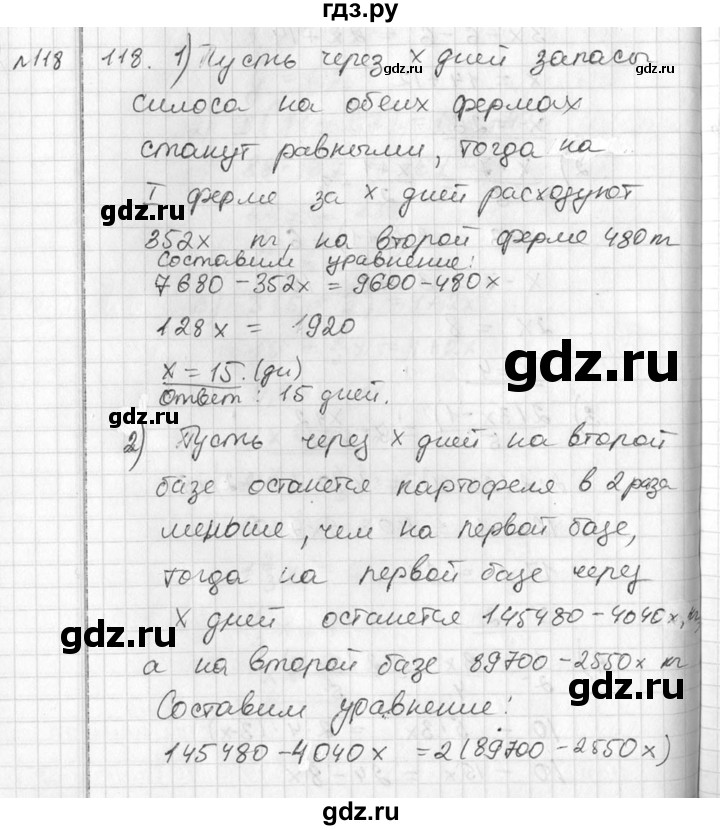 гдз.ру
№118 118. 1) Пусть через x дней запасы
силоса на обеих фермах
станут равными, тогда на
I ферме за x дней расходуют
352x кг, на второй ферме 480
Составим уравнение:
7680-352x = 9600-480x
128x = 1920
x = 15. (дн)
Ответ: 15 дней.
2) Пусть через x дней на второй
базе останется картофеля в 2 раза
меньше, чем на первой базе,
тогда на первой базе через
x дней останется 145480-4040x, кг,
а на второй базе 89700-2550x кг
Составим уравнение:
145480-4040x = 2(89700-2550x)
gdz.ru
gdz.ru
gdz.ru
gdz.ru
gdz.ru
gdz.ru
gdz.ru
gdz.ru
gdz.ru
gdz.ru